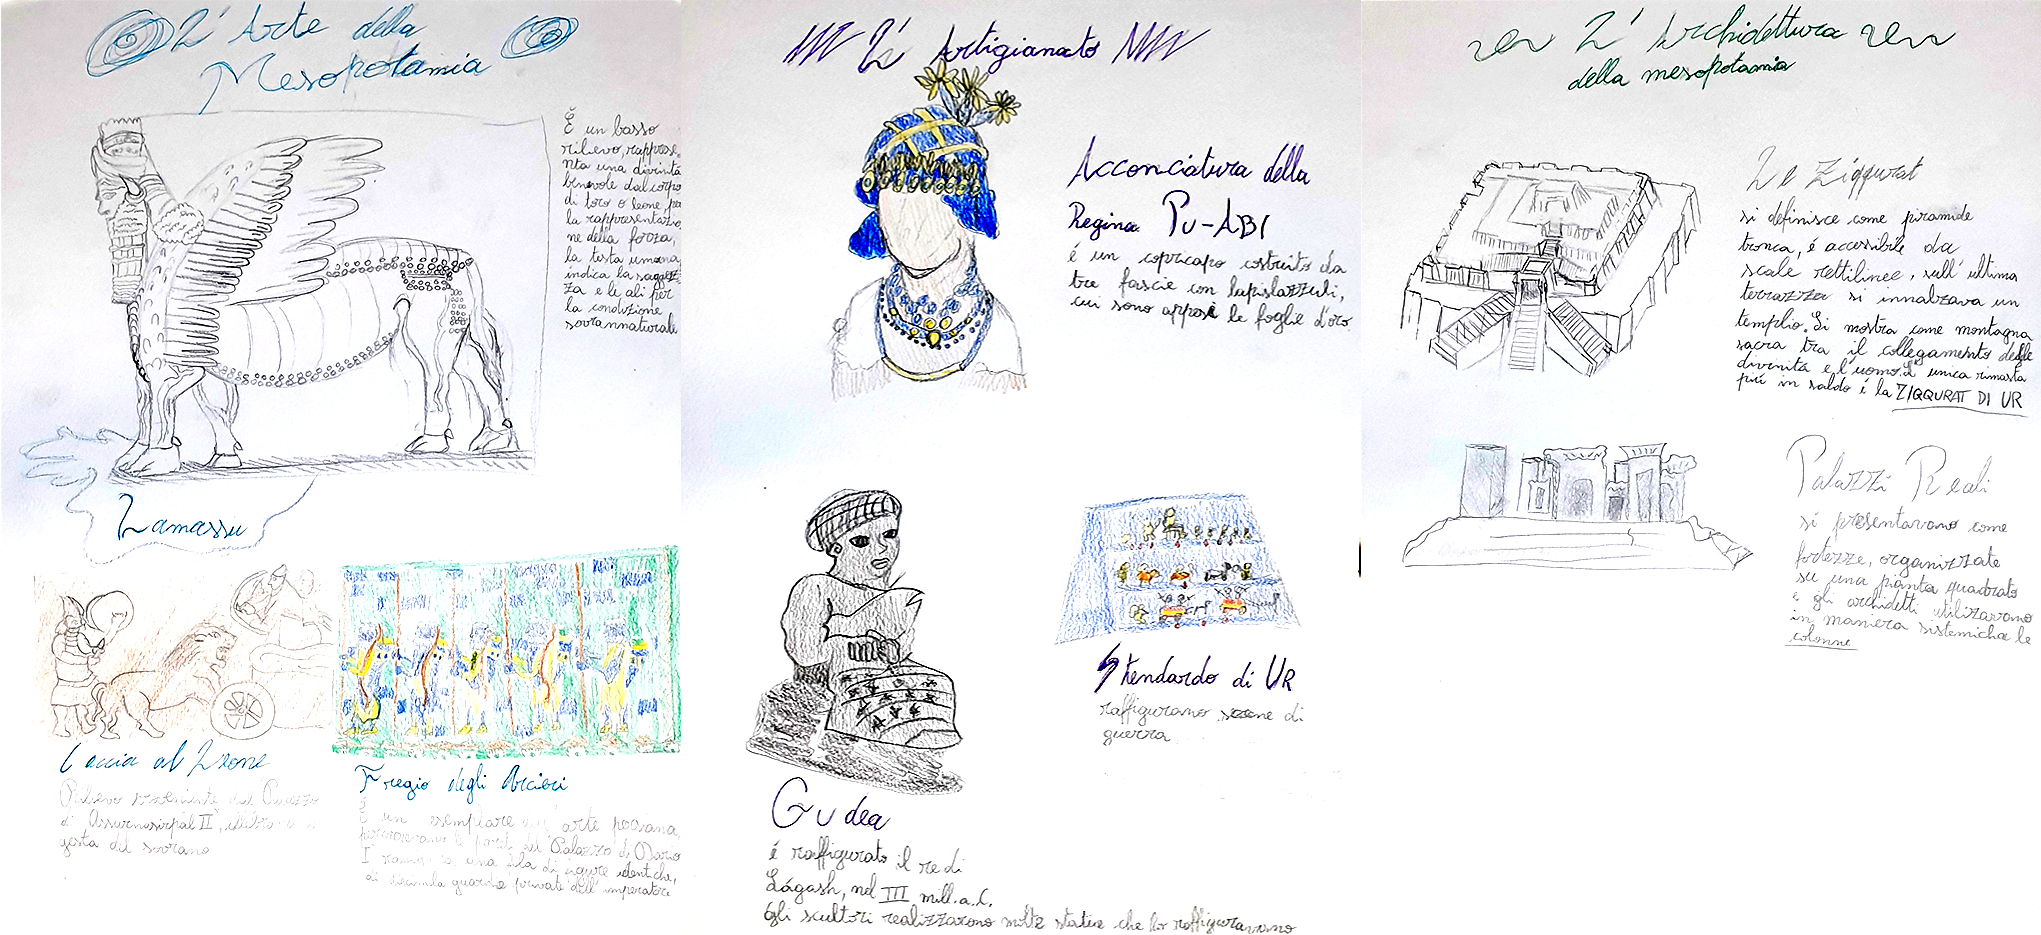 L'Arte della
Mesopotamia
È un basso
rilievo, rapprese
nta una divinità
benevole dal corpo
di toro o leone per
la rappresentazio
ne della forza,
la testa umana
indica la sagezz
za e le ali per
la condizione
sovrannaturale
Lamassu
Caccia al Leone
Rilievo proveniente dal Palazzo
di Assurnasirpal II, celebra le
gesta del sovrano
Fregio degli Arcieri
È un esemplare dell'arte persiana,
le pareti del Palazzo di Dario
I una fila di figure identiche,
guardie private dell'imperatore
L'Artigianato
Acconciatura della
Regina Pu-ABI
é un copricapo costruito da
tre fascie con lapislazzuli,
cui sono apposi le foglie d'oro
Gudea
é raffigurato il re di
Lágash, nel III mill. a.C.
Gli scultori realizzarono molte statue che lo raffiguravano
Stendardo di UR
raffigurano scene di
guerra
L'Archidettura
della mesopotamia
Le Ziqqurat
si definisce come piramide
tronca, é accessibile da
scale rettilinee, sull'ultima
terrazza si innalzava un
templio. Si mostra come montagna
sacra tra il collegamento delle
divinità e l'uomo. L'unica rimasta
più in saldo é la ZIQQURAT DI UR
Palazzi Reali
si presentavano come
fortezze, organizzate
su una pianta quadrato
e gli archidetti utilizzarono
in maniera sistemiche le
colonne